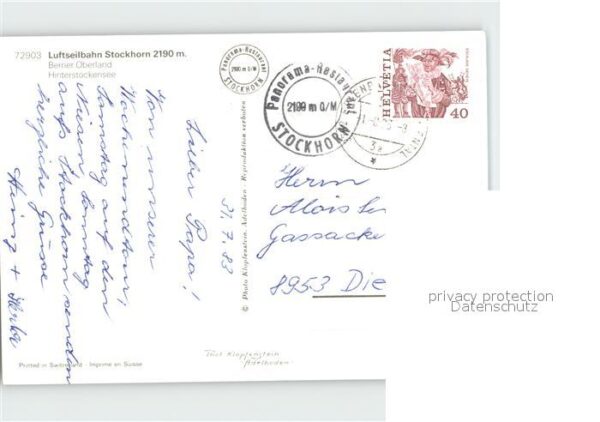 72903 Luftseilbahn Stockhorn 2190 m.
Berner Oberland
Hinterstockensee
Panorama-Restaurant
2190 m ü/M
STOCKHORN
Panorama-Restaurant
2190 m ü/M
STOCKHORN
HELVETIA
40
3a
31.7.83
Lieber Papa!
Von unserer
Wochenendtour,
Samstag auf den
Niesen Sonntag
aufs Stockhorn senden
herzliche Grüsse
Heinz +
© Photo Klopfenstein, Adelboden · Reproduktion verboten
Herrn
Alois
Gassacke
8953 Die
Printed in Switzerland - Imprimé en Suisse
Klopfenstein
Adelboden
privacy protection
Datenschutz